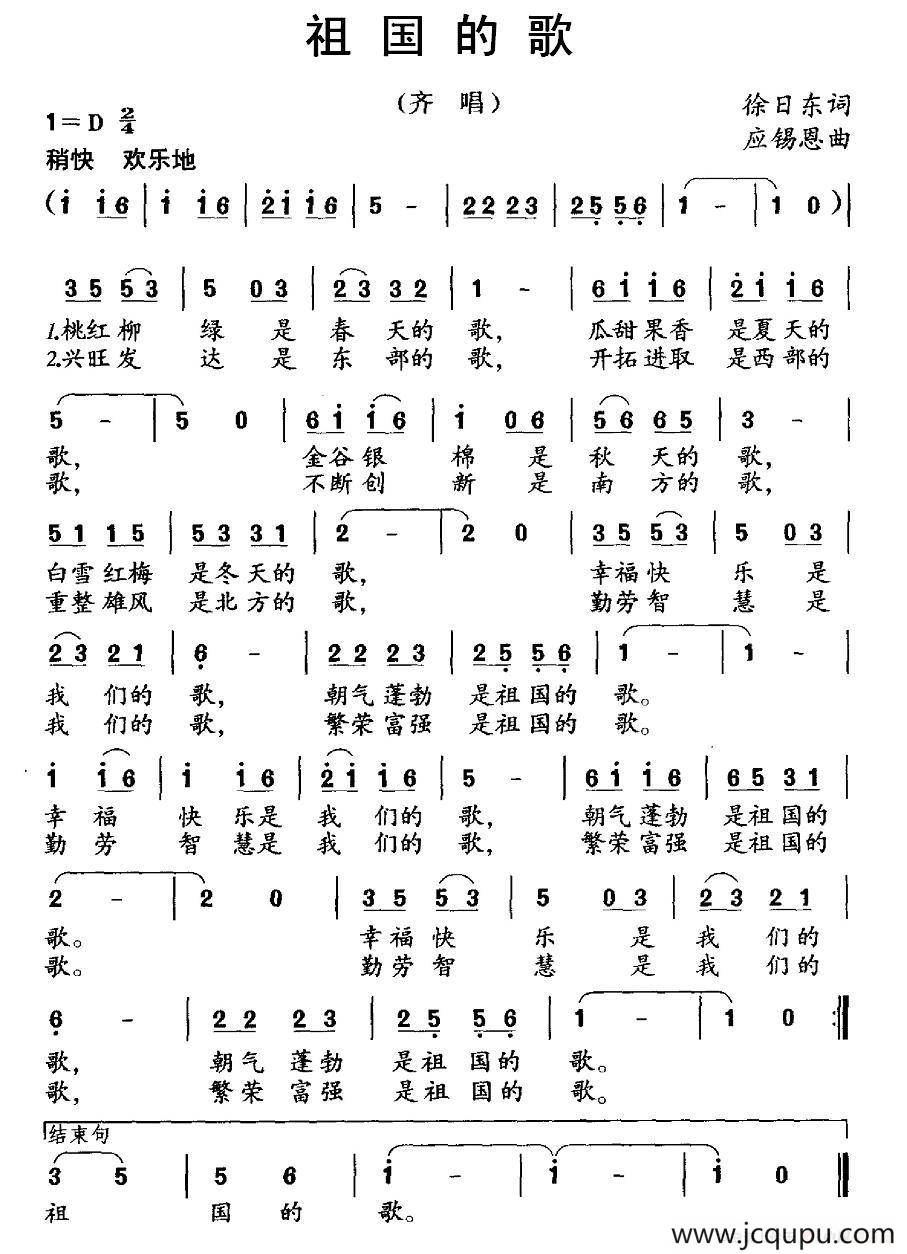 祖国的歌
(齐 唱)
1=D 2/4
徐日东词
应锡恩曲
稍快 欢乐地
(i i6 | i i6 | 2i i6 | 5 - | 22 23 | 25 56 | 1 - | 1 0)|
35 53 | 5 03 | 23 32 | 1 - | 6i i6 | 2i i6 |
1.桃红柳 绿 是 春 天的 歌, 瓜甜果香 是夏天的
2.兴旺发 达 是 东 部的 歌, 开拓进取 是西部的
5 - | 5 0 | 6i i6 | i 06 | 56 65 | 3 - |
歌, 金谷银 棉 是 秋 天的 歌,
歌, 不断创 新 是 南 方的 歌,
51 15 | 53 31 | 2 - | 2 0 | 35 53 | 5 03 |
白雪红梅 是冬天的 歌, 幸福快 乐 是
重整雄风 是北方的 歌, 勤劳智 慧 是
23 21 | 6 - | 22 23 | 25 56 | 1 - | 1 - |
我 们的 歌, 朝气蓬勃 是祖国的 歌。
我 们的 歌, 繁荣富强 是祖国的 歌。
i i6 | i i6 | 2i i6 | 5 - | 6i i6 | 65 31 |
幸 福 快 乐是 我 们的 歌, 朝气蓬勃 是祖国的
勤 劳 智 慧是 我 们的 歌, 繁荣富强 是祖国的
2 - | 2 0 | 35 53 | 5 03 | 23 21 |
歌。 幸福快 乐 是 我 们的
歌。 勤劳智 慧 是 我 们的
6 - | 22 23 | 25 56 | 1 - | 1 0 :|
歌, 朝气蓬勃 是祖国的 歌。
歌, 繁荣富强 是祖国的 歌。
结束句
3 5 | 5 6 | i - | i - | i 0 ‖
祖 国 的 歌。
www.jcqupu.com